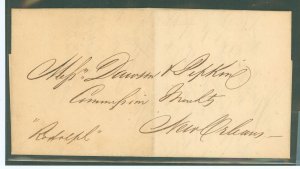 Messrs Dawson & Pipkin
Commission Merchts
New Orleans
"Rodolph"